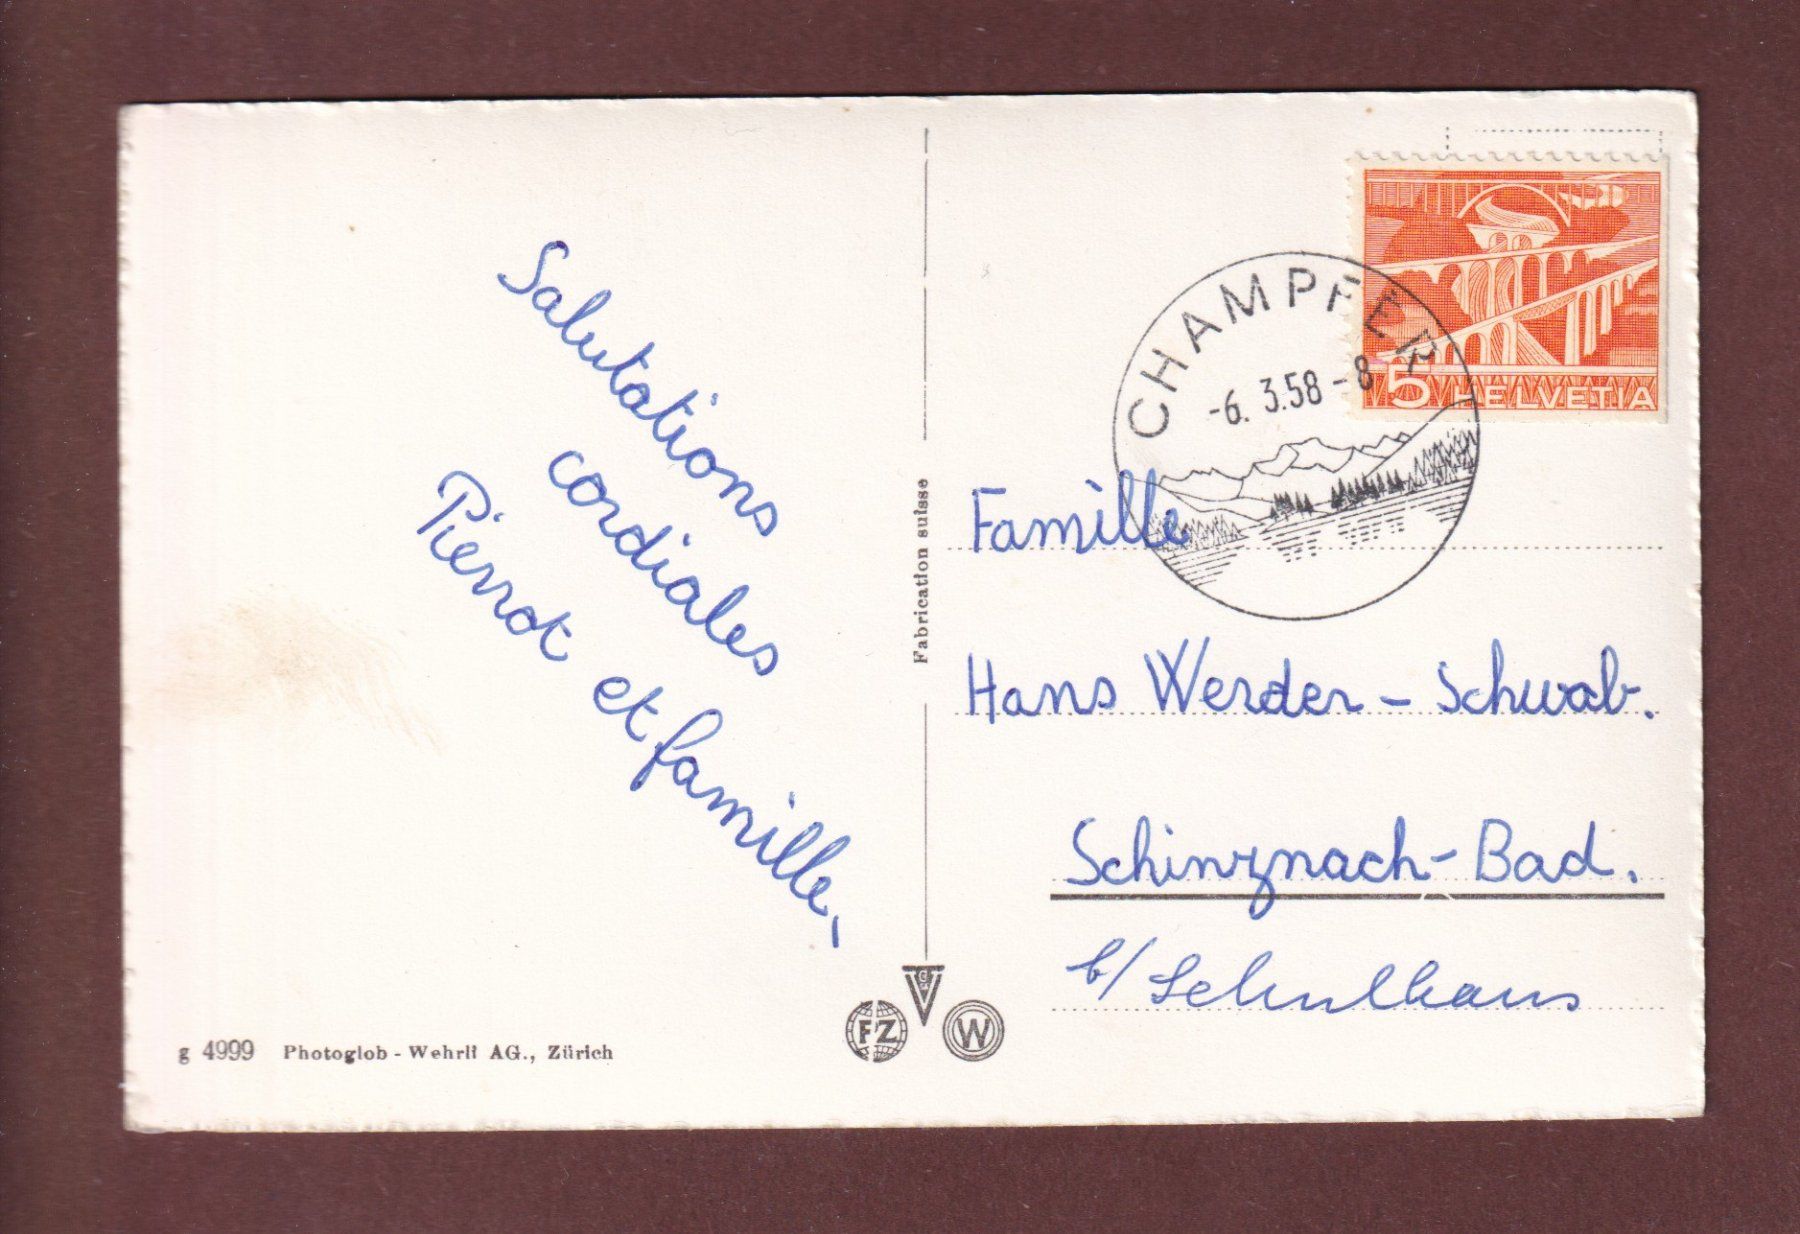 Salutations
cordiales
Pierrot et famille.-
g 4999 Photoglob - Wehrli AG., Zürich
Fabrication suisse
PZ
V
W
CHAMPFÈR
-6. 3.58-8
5 HELVETIA
Famille
Hans Werder - Schwab.
Schinznach-Bad.
b/ Schulhaus